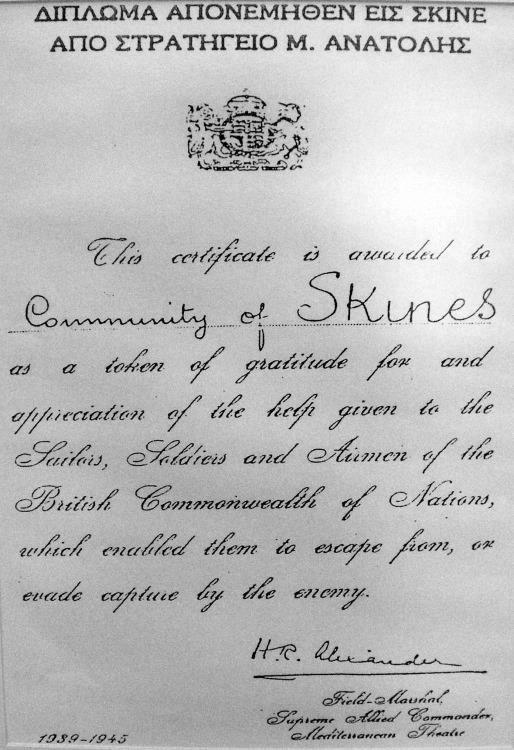 ΔΙΠΛΩΜΑ ΑΠΟΝΕΜΗΘΕΝ ΕΙΣ ΣΚΙΝΕ
ΑΠΟ ΣΤΡΑΤΗΓΕΙΟ Μ. ΑΝΑΤΟΛΗΣ
This certificate is awarded to
Community of SKINES
as a token of gratitude for and
appreciation of the help given to the
Sailors, Soldiers and Airmen of the
British Commonwealth of Nations,
which enabled them to escape from, or
evade capture by the enemy.
H.R. Alexander
Field-Marshal,
Supreme Allied Commander,
Mediterranean Theatre
1939-1945